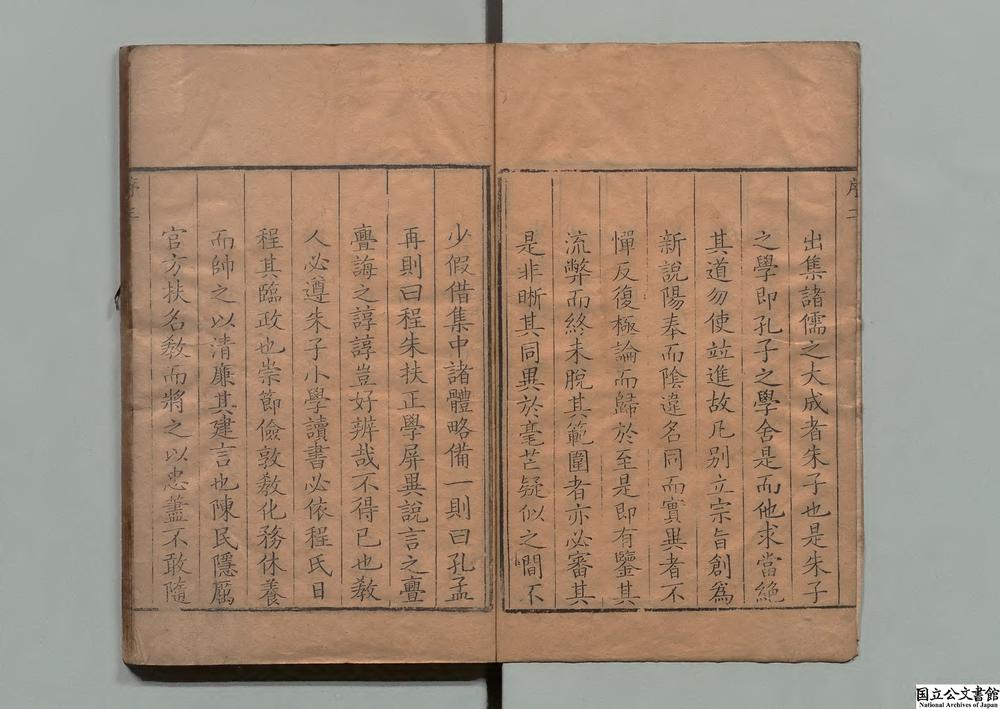 序二
出集諸儒之大成者朱子也是朱子
之學即孔子之學舍是而他求當絶
其道勿使竝進故凡别立宗旨創爲
新說陽奉而陰違名同而實異者不
憚反復極論而歸於至是即有鑒其
流弊而終未脫其範圍者亦必審其
是非晰其同異於毫芒疑似之間不
少假借集中諸體略備一則曰孔孟
再則曰程朱扶正學屏異說言之亹
亹誨之諄諄豈好辨哉不得已也教
人必遵朱子小學讀書必依程氏日
程其臨政也崇節儉敦教化務休養
而帥之以清廉其建言也陳民隱厲
官方扶名教而將之以忠藎不敢隨
序三
国立公文書館
National Archives of Japan